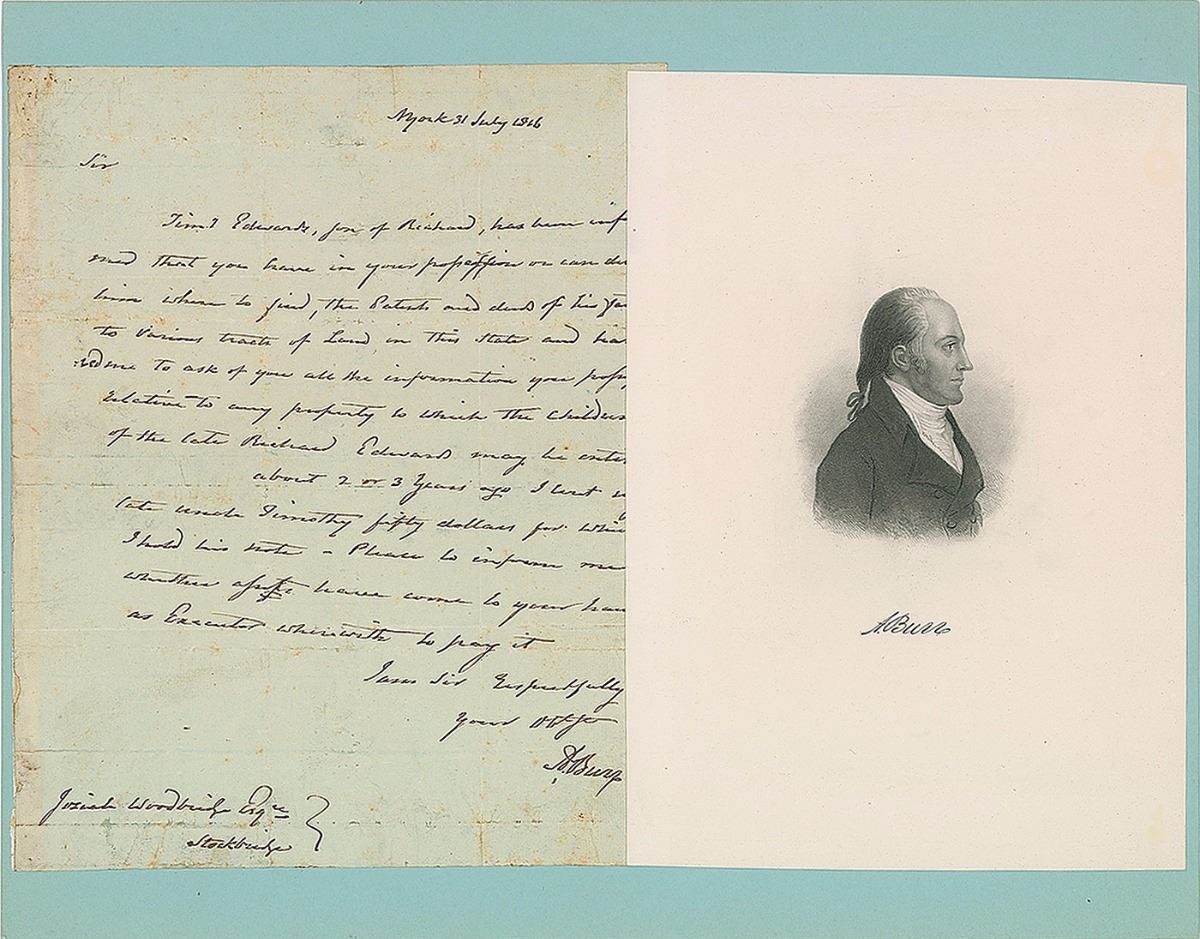 NYork 31 July 1816
Sir
Tim.y Edwards, son of Richard, has been inf
med that you have in your possession or can di
him where to find, the Patents and deeds of his fa
to various tracts of Land in this State and has
red me to ask of you all the information you poss
relative to any property to which the children
of the late Richard Edwards may be enti
about 2 or 3 Years ago I lent
late uncle Timothy fifty dollars for whi
I hold his note - Please to inform me
whether assets have come to your han
as Executor wherewith to pay it
I am Sir Respectfully
Your Ob St
A. Burr
Josiah Woodbridge Esqre
Stockbridge
A. Burr